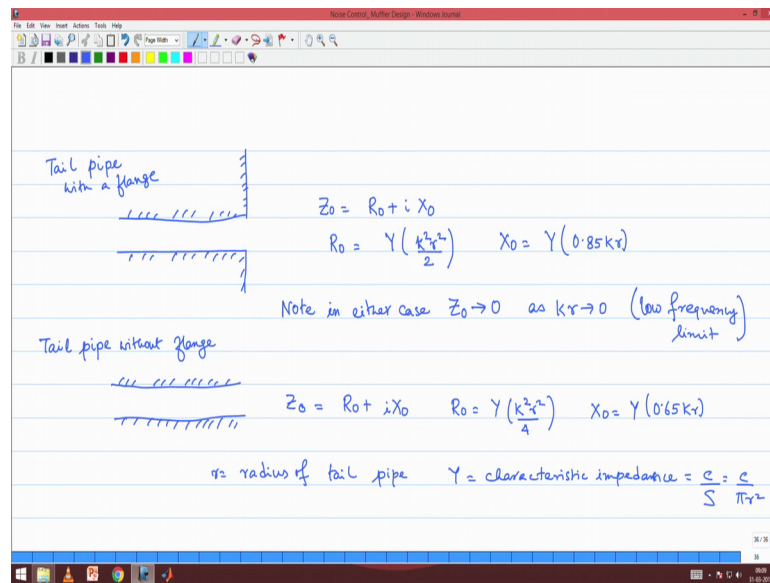 Noise Control_Muffler Design - Windows Journal
File Edit View Insert Actions Tools Help
Page Width
B I
Tail pipe
with a flange
Z0 = R0 + i X0
R0 = Y(k²r²/2) X0 = Y(0.85kr)
Note in either case Z0→0 as kr→0 (low frequency
limit)
Tail pipe without flange
Z0 = R0 + iX0 R0 = Y(k²r²/4) X0 = Y(0.65kr)
r = radius of tail pipe Y = characteristic impedance = c/S = c/πr²
36 / 36
36
09:09